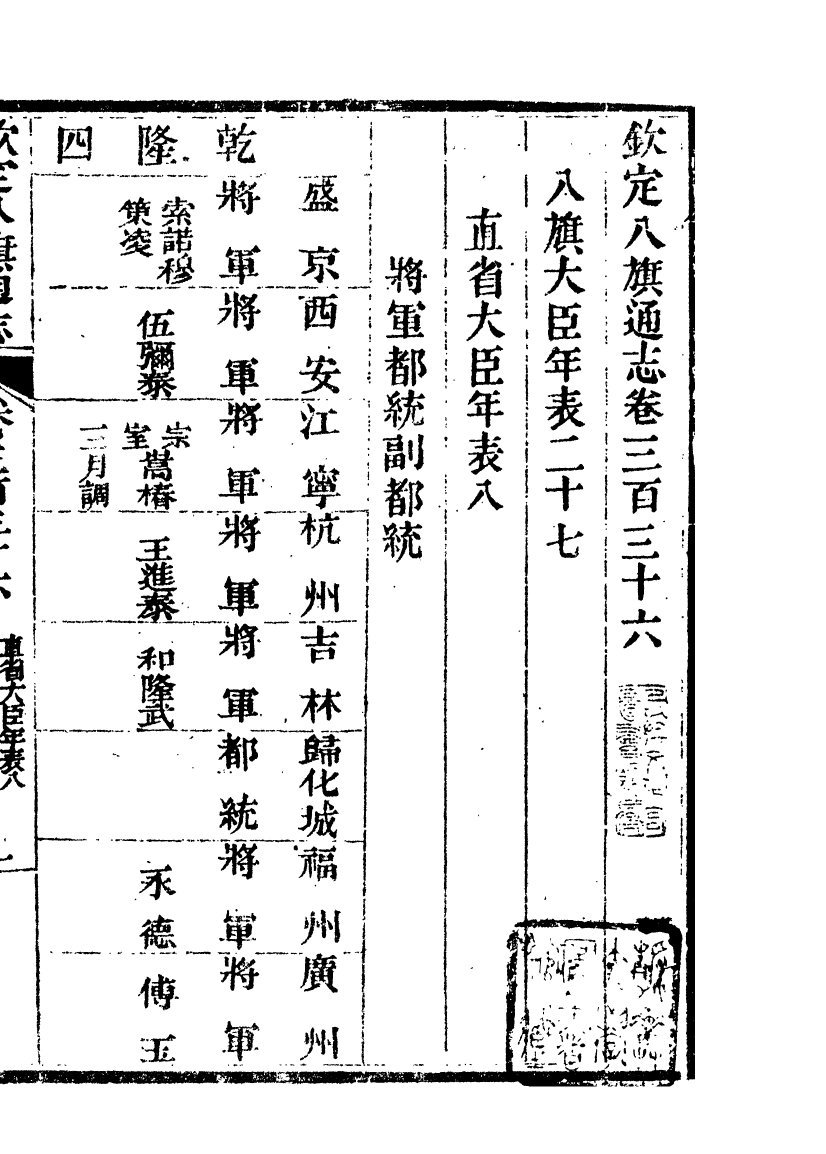 欽定八旗通志卷三百三十六
八旗大臣年表二十七
直省大臣年表八
將軍都統副都統
盛京 西安 江寧 杭州 吉林 歸化城 福州 廣州
乾 將軍 將軍 將軍 將軍 將軍 都統 將軍 將軍
隆 索諾穆策凌 伍彌泰 宗室嵩椿 王進泰 和隆武 永德 傅玉
四 三月調
欽定八旗通志
直省大臣年表八